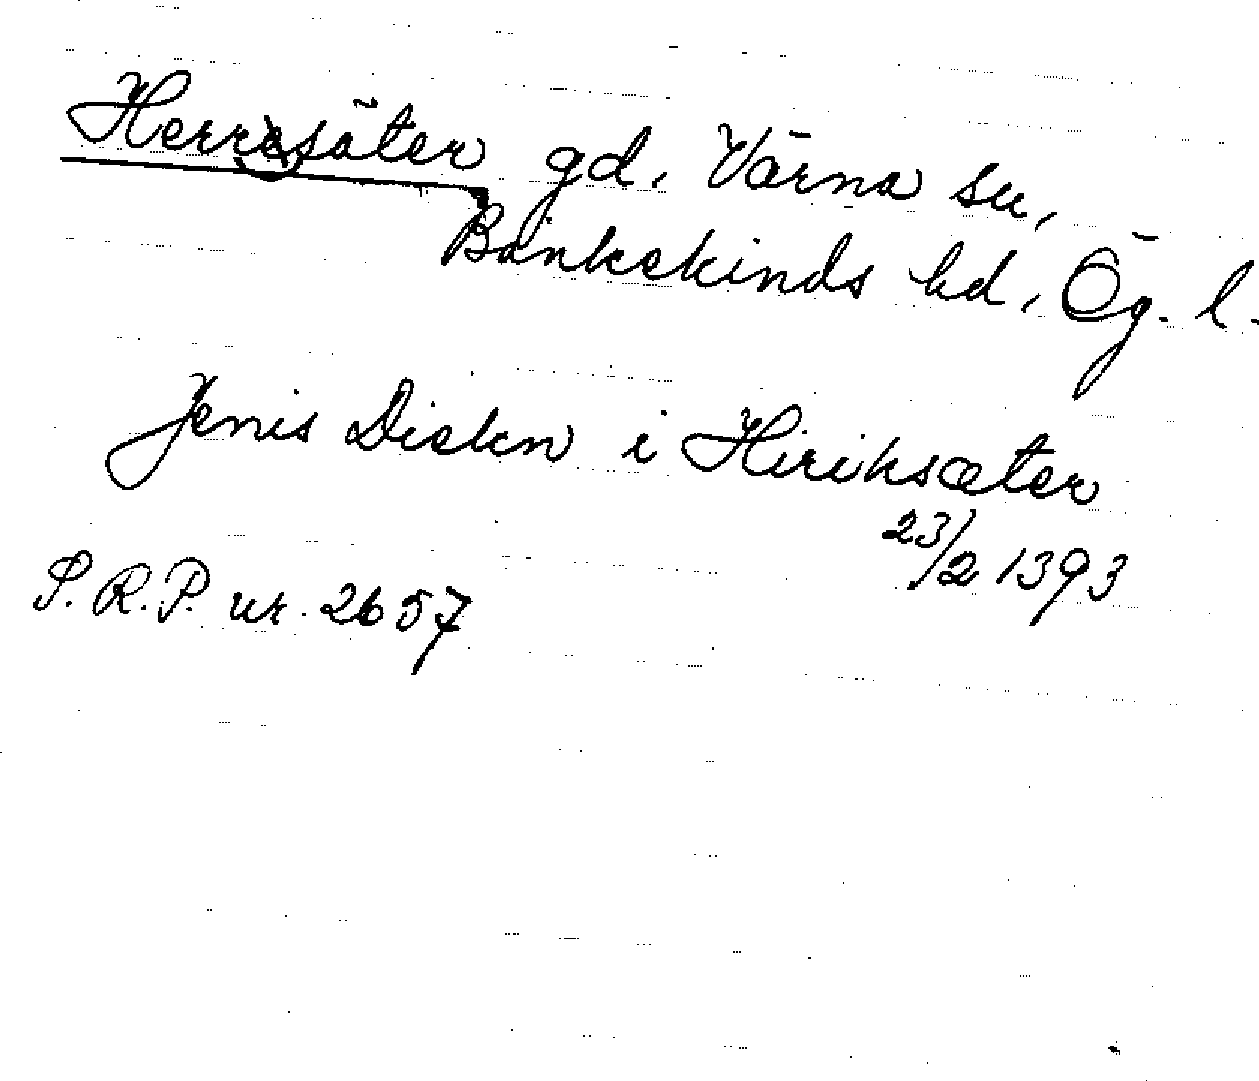 Herrsäter gd, Värna sn,
Bankekinds hd, Ög. l.
Jenis Diekn i Hiriksæter
23/2 1393
S.R.P. nr. 2657